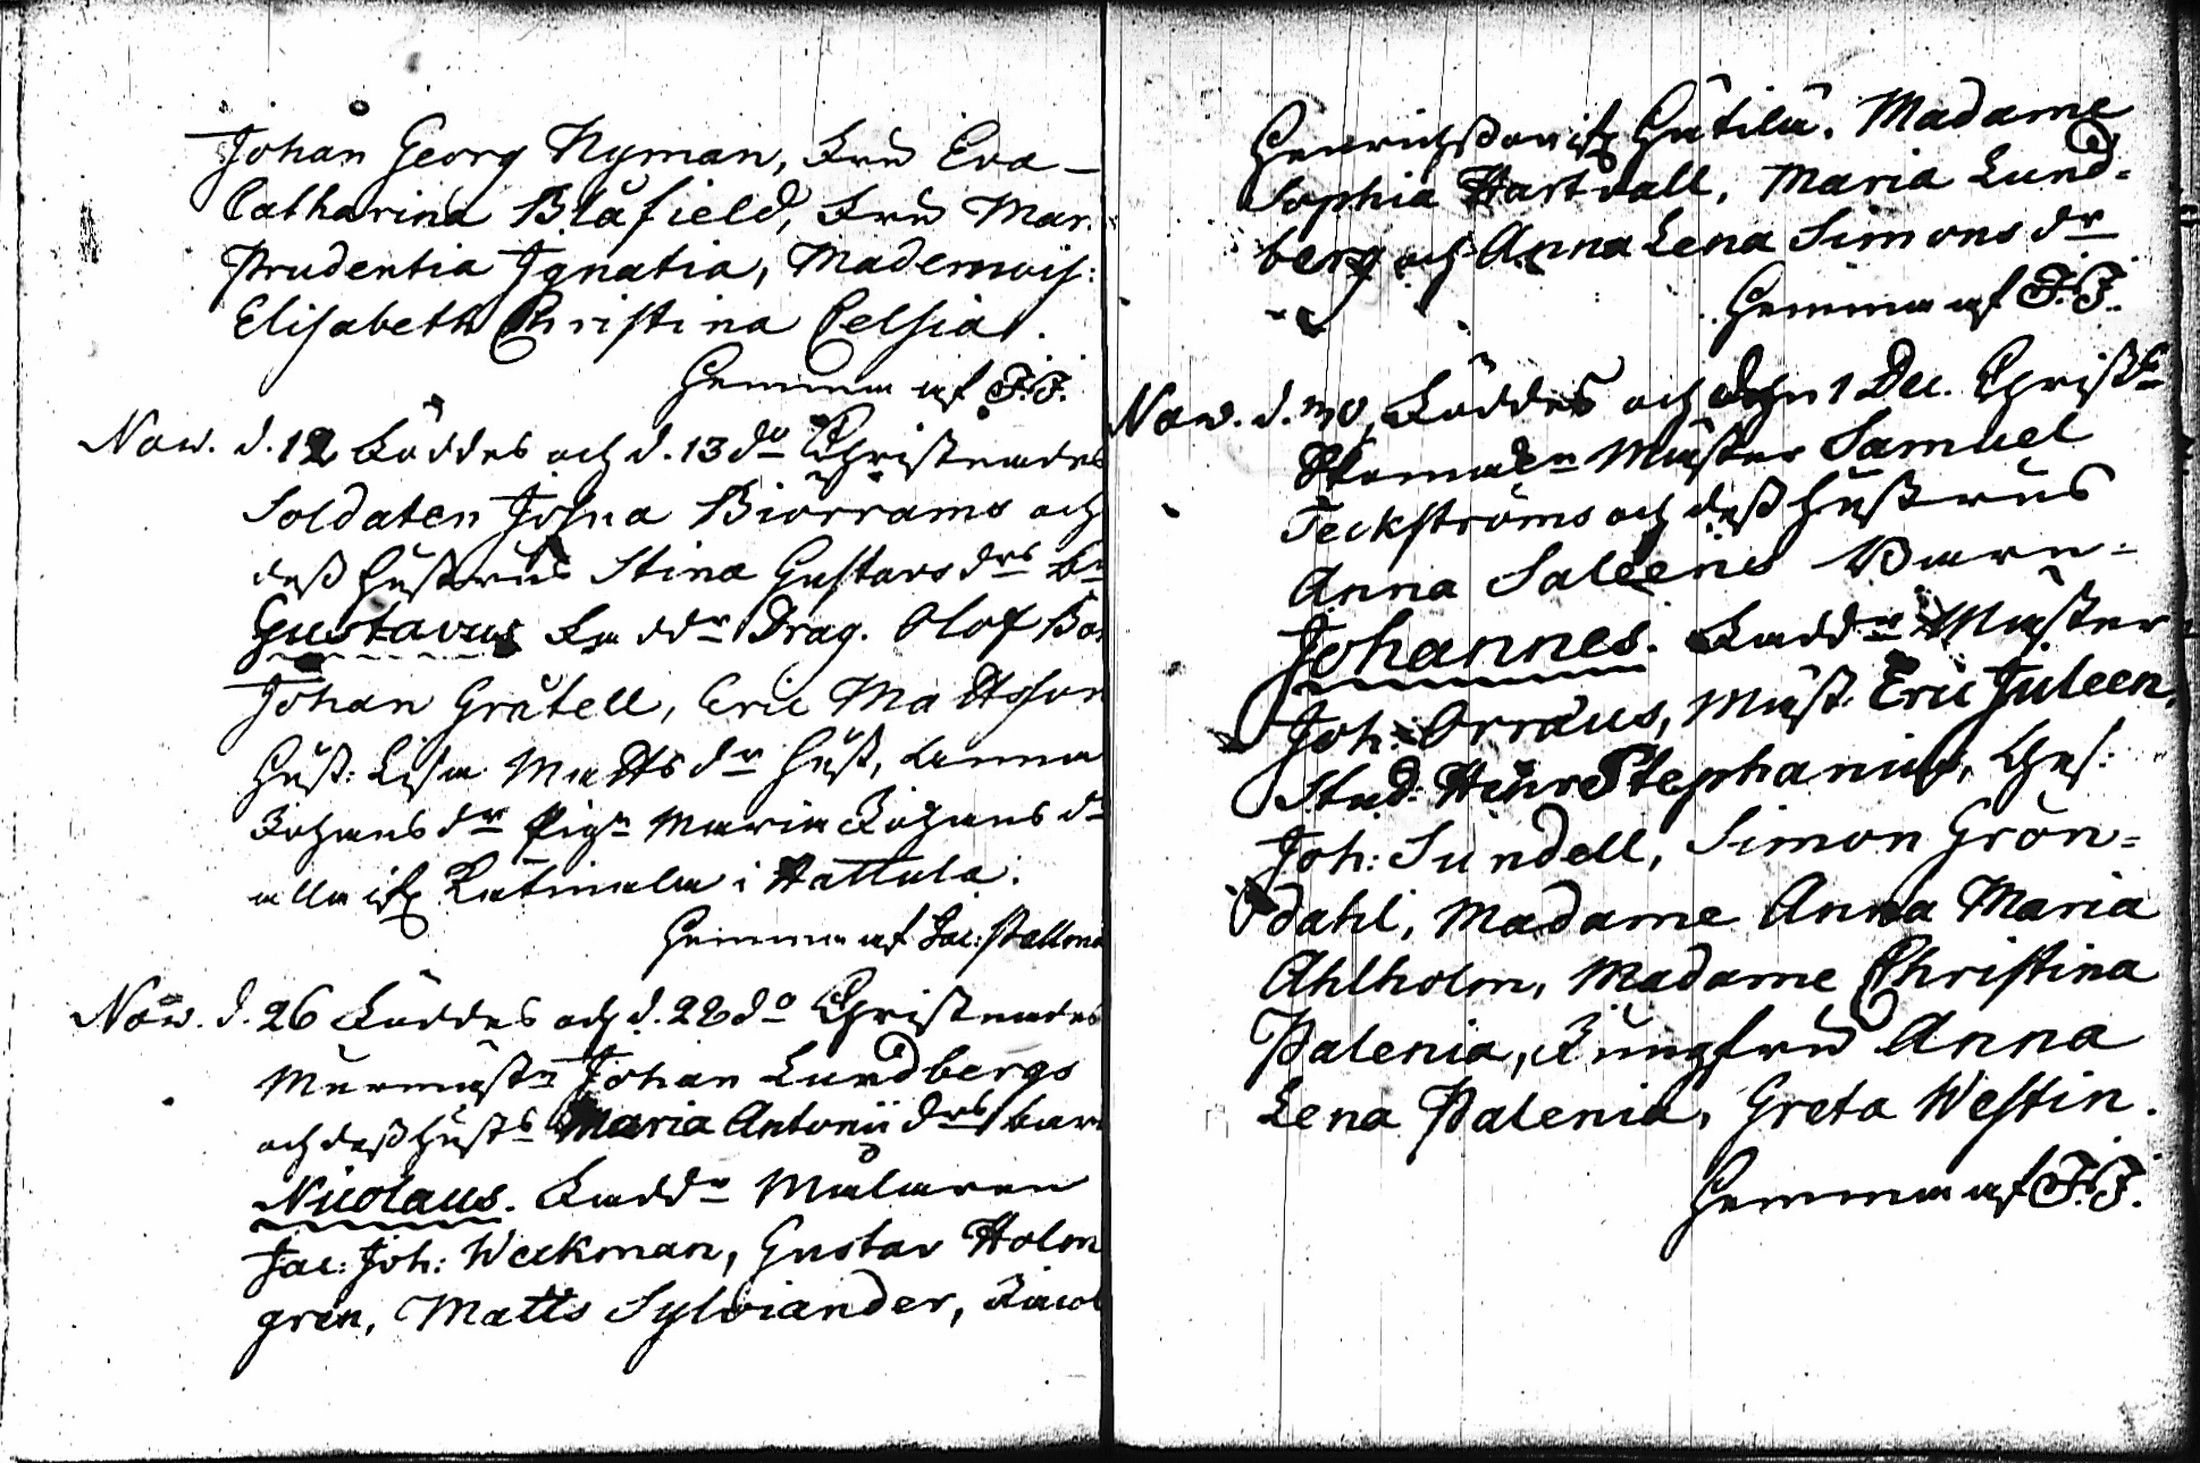 Johan Georg Nyman, Fru Eva
Catharina Blåfield, Fru Mar.
Prudentia Ignatia, Mademois:
Elisabeth Christina Celsia.
Hemma af J.J.
Nov. d. 12 föddes och d. 13 do Christnades
Soldaten Josua Biörrams och
deß hustrus Stina Gustavs drs
Gustavus Faddr Drag. Olof
Johan Grutell, Eric Mattsson
Hust: Lisa Matts dr Hust, Anna
Johans dr Pig. Maria Johans dr
alla ifr Katinala i Hattula.
Hemma af Jac:
Nov. d. 26 föddes och d. 28 do Christnades
Murmäst Johan Lundbergs
och deß hust Maria Antonii drs barn
Nicolaus. Faddr Målaren
Jac: Joh: Weckman, Gustav Holm
gren, Matts Sylviander, Jacob
Henrichßon ifr Hätilä. Madame
Sophia Hartvall, Maria Lund=
berg och Anna Lena Simons dr
Hemma af J.J.
Nov. d. 30 föddes och den 1 Dec. Christs
Mäster Samuel
Teckströms och deß hustrus
Anna Saleens Barn=
Johannes. Faddr Mäster
Joh: Orræus, Mäst. Eric Juleen,
Stud: Henr Stephanius, Ges:
Joh: Sundell, Simon Grön=
dahl, Madame Anna Maria
Ahlholm, Madame Christina
Palenia, Jungfru Anna
Lena Palenia, Greta Westin.
Hemma af J.J.